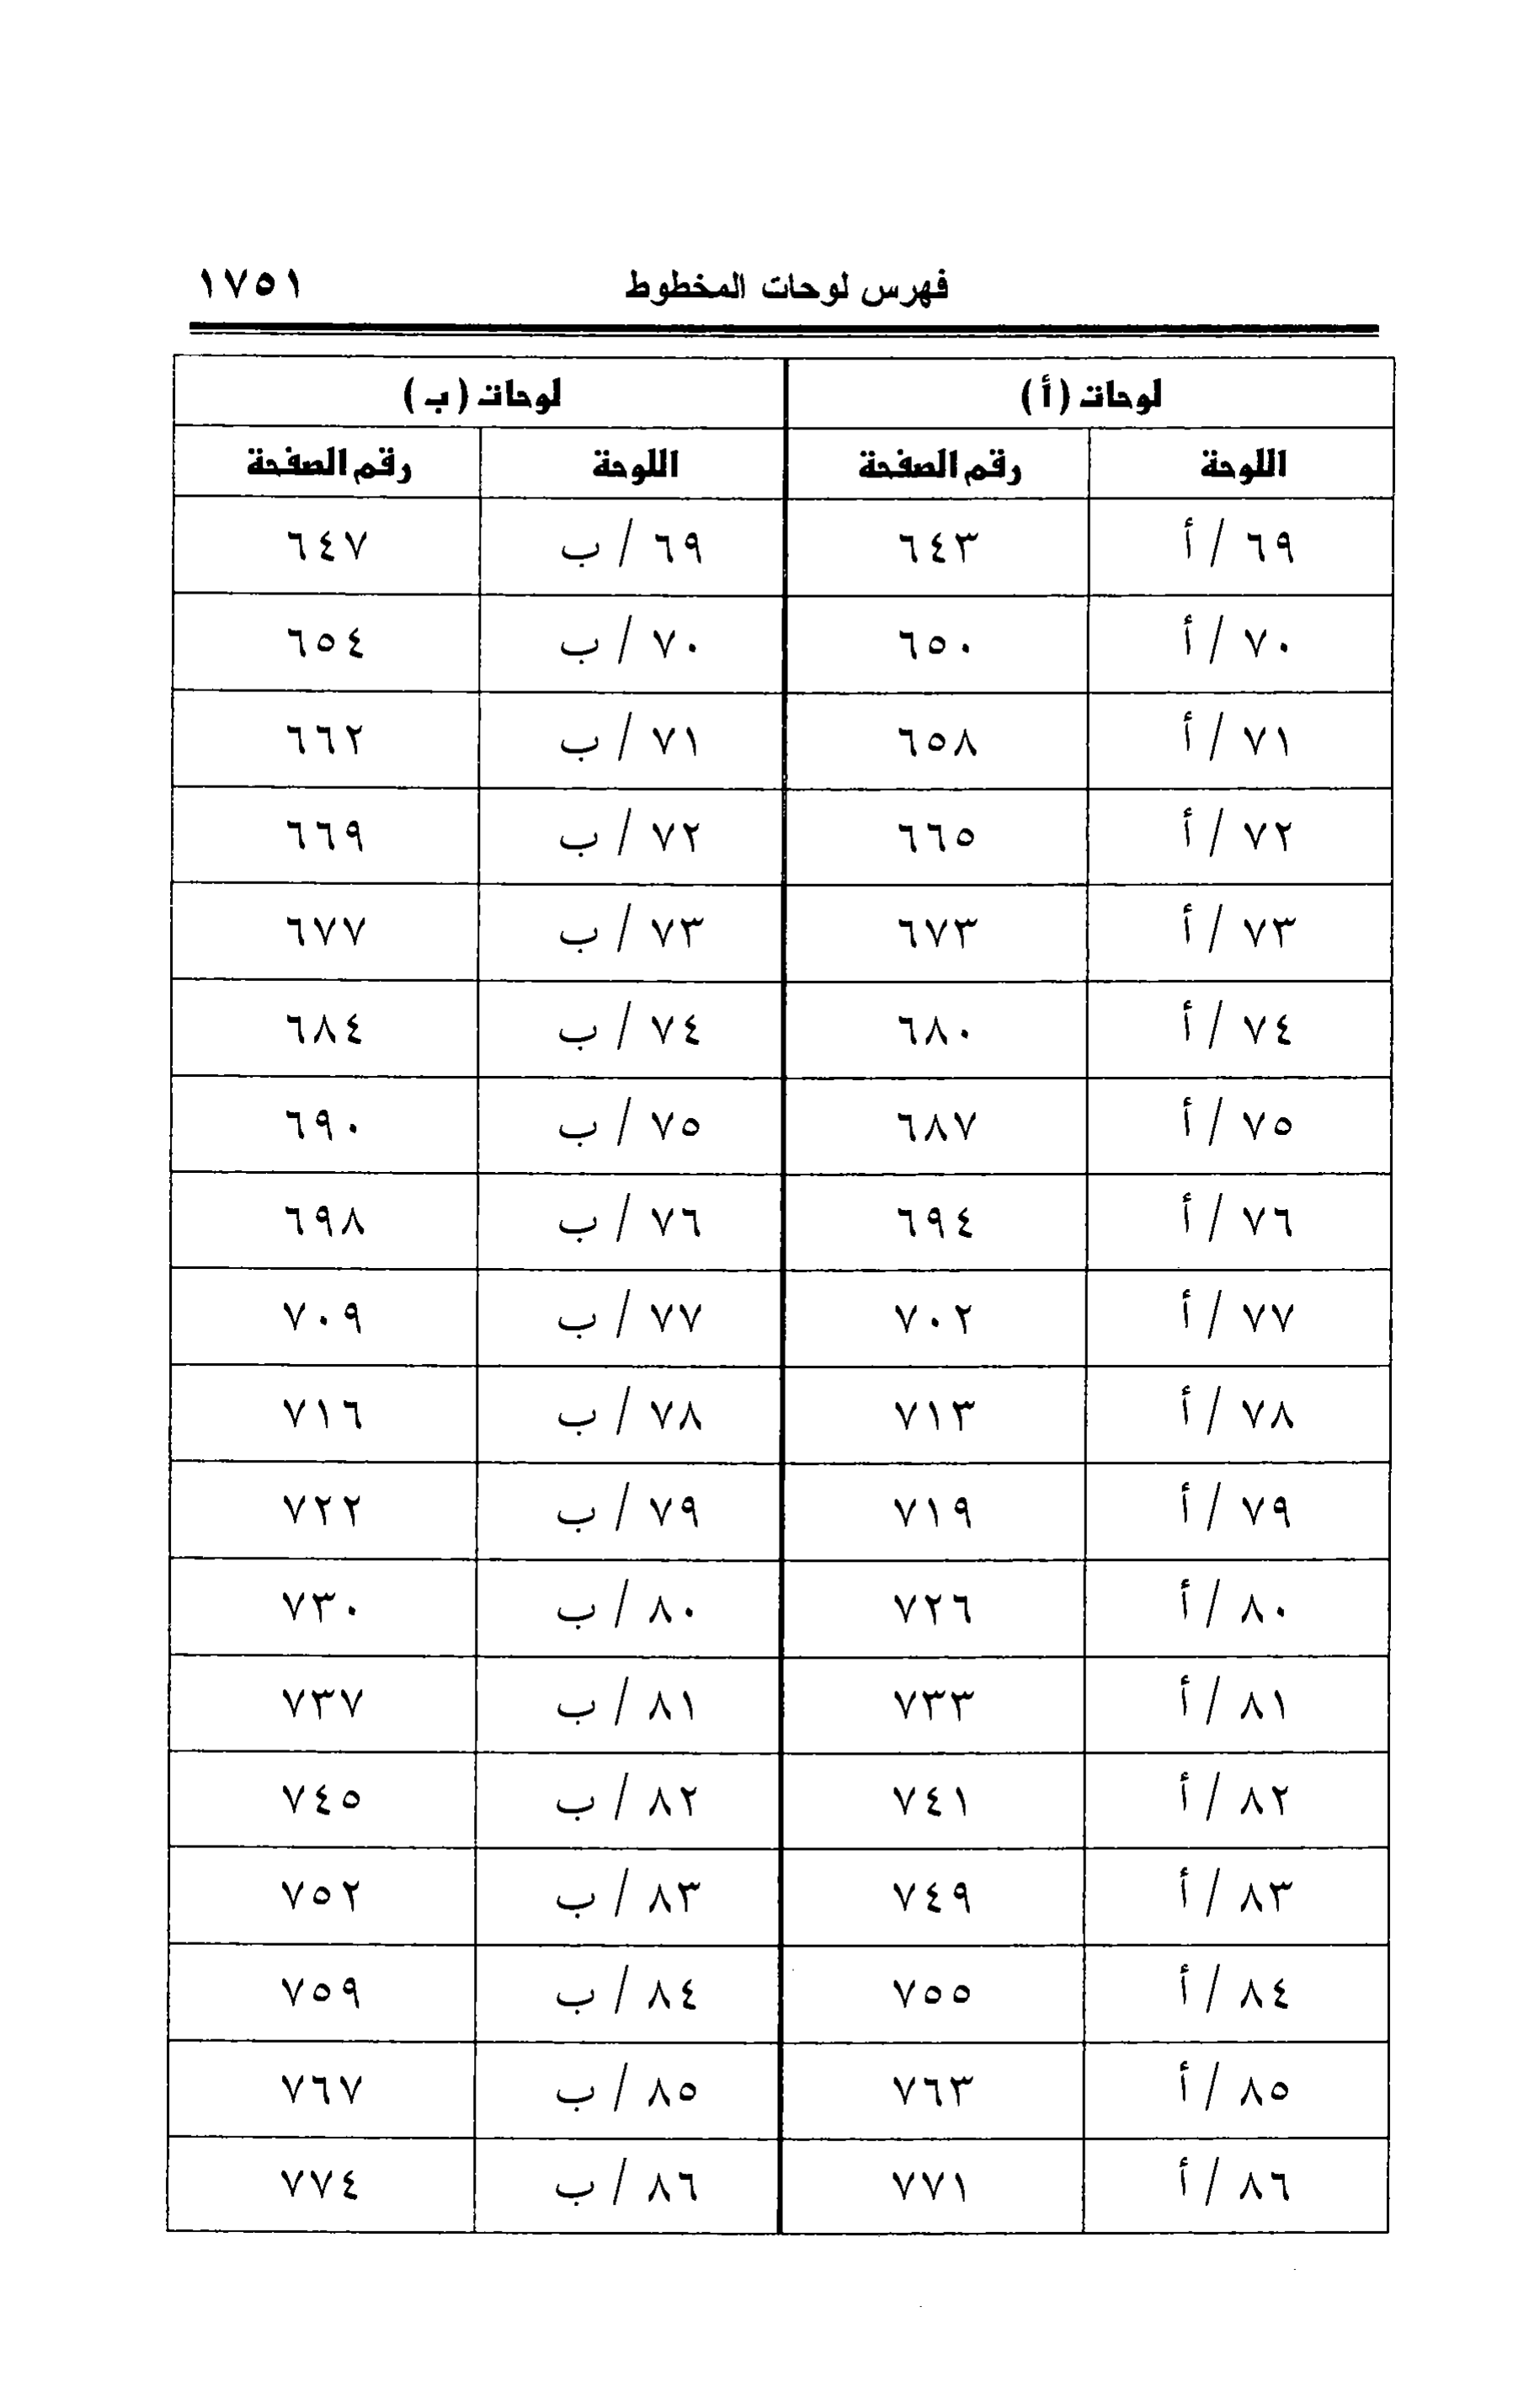 فهرس لوحات المخطوط ١٧٥١
لوحات (أ) لوحات (ب)
اللوحة رقم الصفحة اللوحة رقم الصفحة
٦٩ / أ ٦٤٣ ٦٩ / ب ٦٤٧
٧٠ / أ ٦٥٠ ٧٠ / ب ٦٥٤
٧١ / أ ٦٥٨ ٧١ / ب ٦٦٢
٧٢ / أ ٦٦٥ ٧٢ / ب ٦٦٩
٧٣ / أ ٦٧٣ ٧٣ / ب ٦٧٧
٧٤ / أ ٦٨٠ ٧٤ / ب ٦٨٤
٧٥ / أ ٦٨٧ ٧٥ / ب ٦٩٠
٧٦ / أ ٦٩٤ ٧٦ / ب ٦٩٨
٧٧ / أ ٧٠٢ ٧٧ / ب ٧٠٩
٧٨ / أ ٧١٣ ٧٨ / ب ٧١٦
٧٩ / أ ٧١٩ ٧٩ / ب ٧٢٢
٨٠ / أ ٧٢٦ ٨٠ / ب ٧٣٠
٨١ / أ ٧٣٣ ٨١ / ب ٧٣٧
٨٢ / أ ٧٤١ ٨٢ / ب ٧٤٥
٨٣ / أ ٧٤٩ ٨٣ / ب ٧٥٢
٨٤ / أ ٧٥٥ ٨٤ / ب ٧٥٩
٨٥ / أ ٧٦٣ ٨٥ / ب ٧٦٧
٨٦ / أ ٧٧١ ٨٦ / ب ٧٧٤